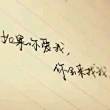 如果你爱我,
你会来找我